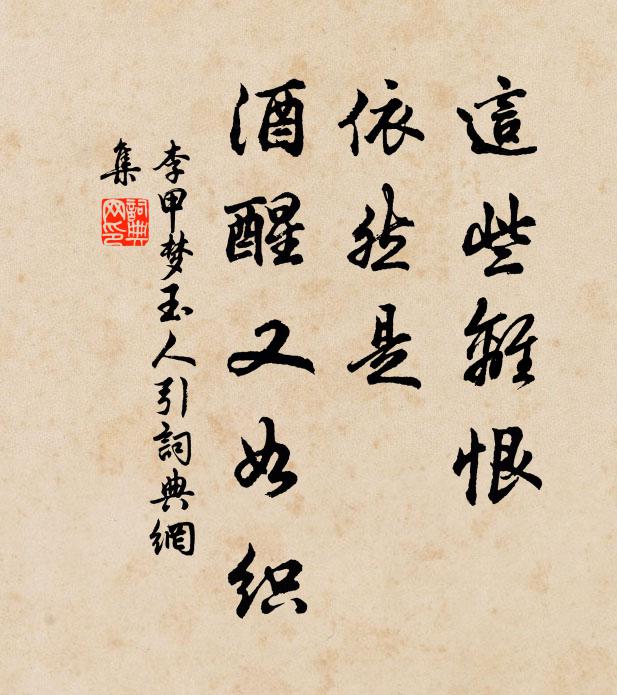 這些離恨
依然是
酒醒又如織
李甲梦玉人引詞典網
集
詞典
网印